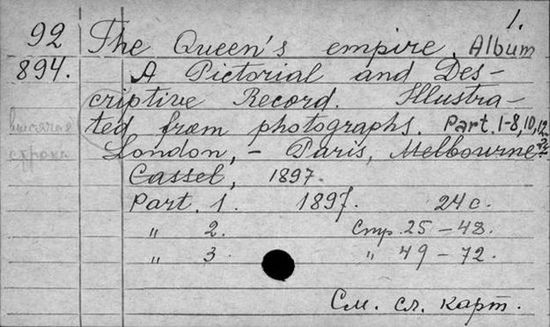 1.
92 The Queen's empire. Album
894. A Pictorial and Des-
criptive Record. Illustra-
ted from photographs. Part. 1-8, 10, 12
London, - Paris, Melbourne
Cassel, 1897.
Part. 1. 1897. 24 с.
" 2. Стр. 25-48.
" 3. " 49-72.
См. сл. карт.
строка